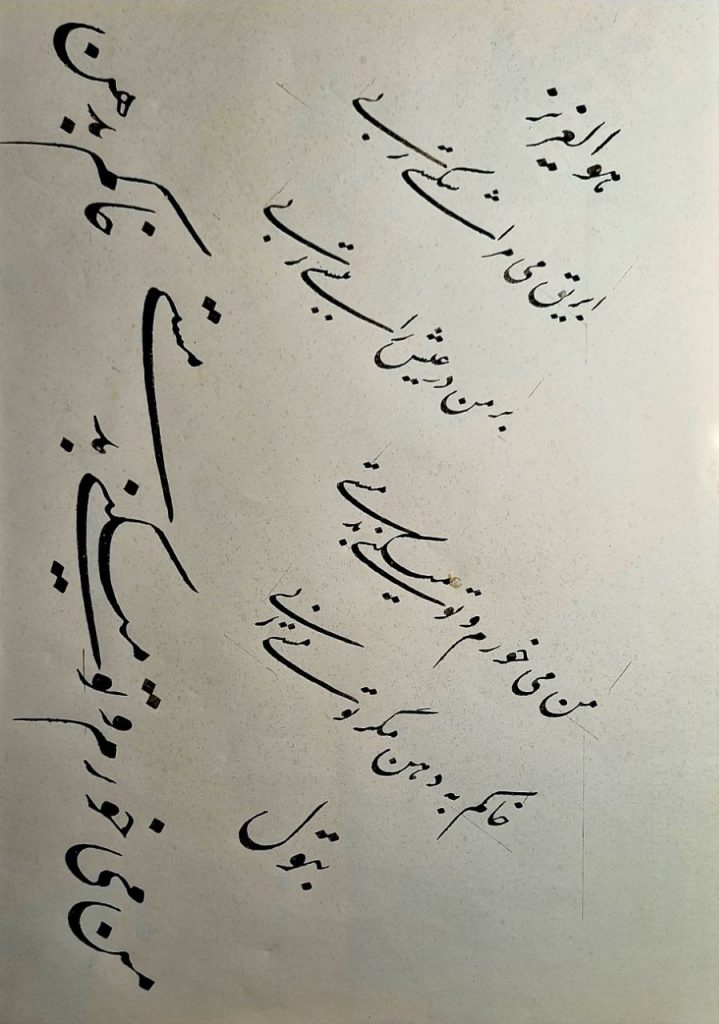 هوالعزیز
ابریق می مرا شکستی ربی
بر من در عیش را ببستی ربی
من می خورم و تو میکنی بدمستی
خاکم به دهن مگر تو مستی ربی
بتول
من می خورم و تو میکنی بد مستی خاکم بدهن